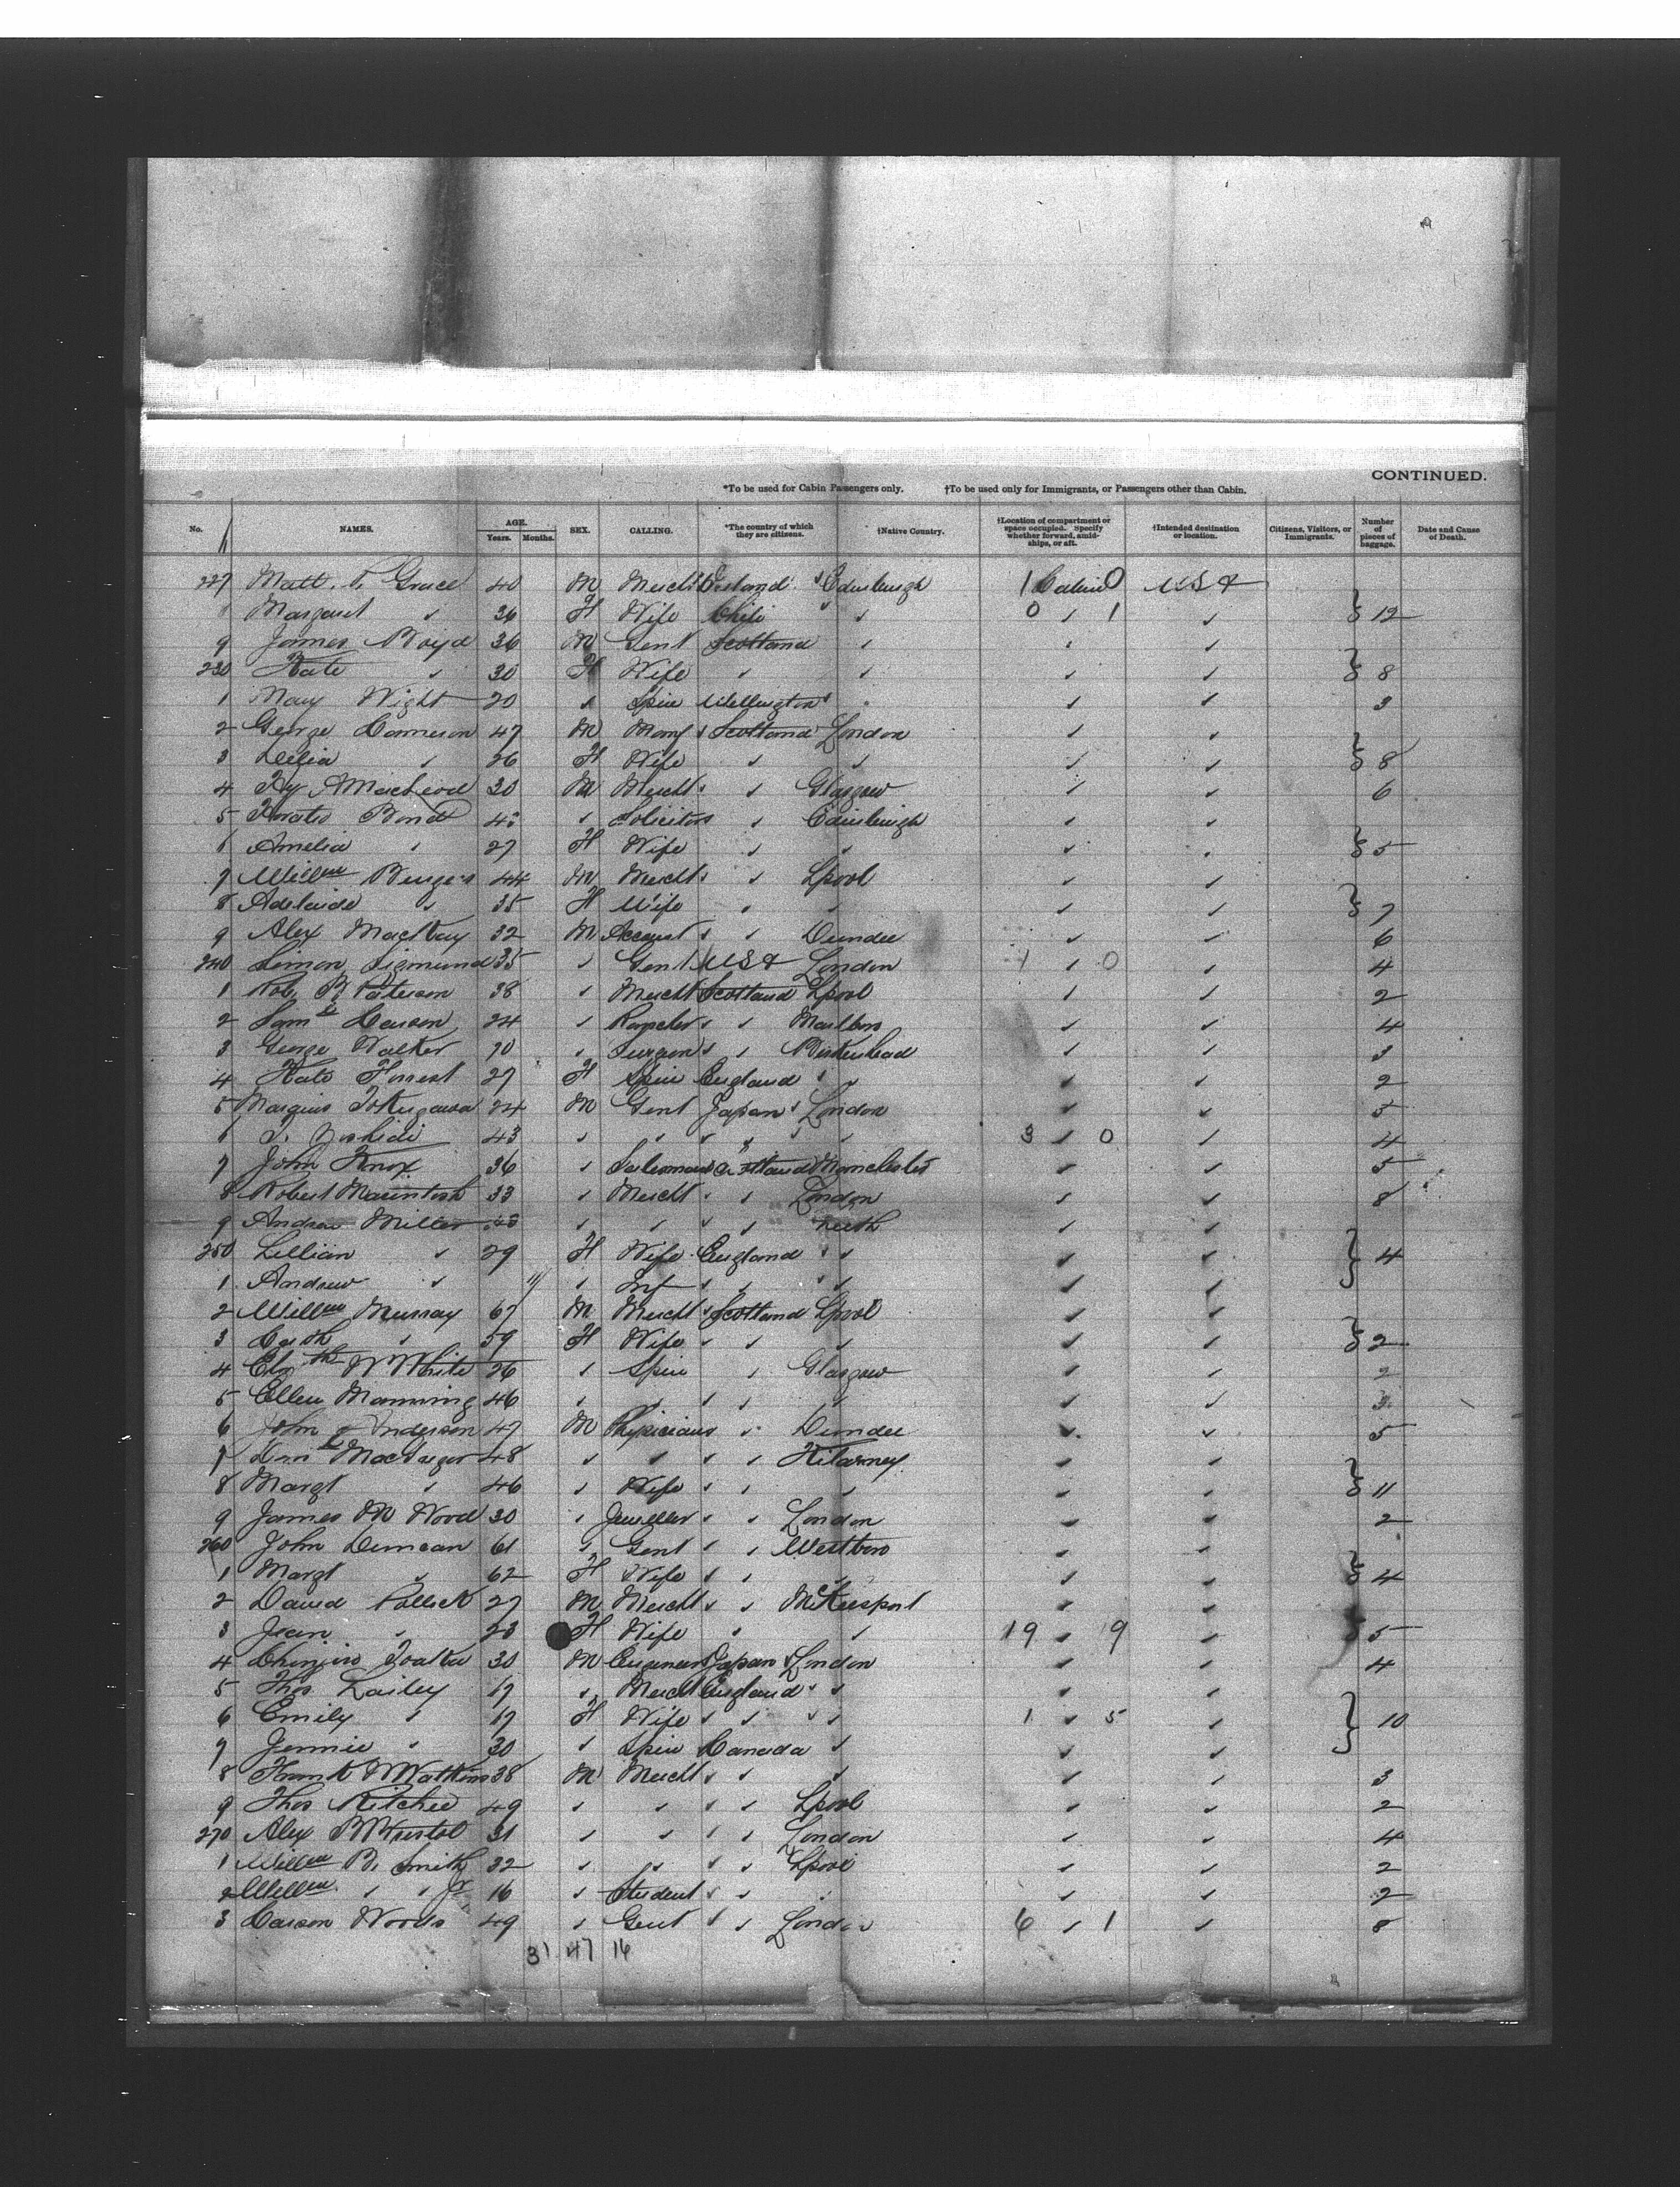 CONTINUED.
*To be used for Cabin Passengers only. †To be used only for Immigrants, or Passengers other than Cabin.
No. NAMES. AGE. Years. Months. SEX. CALLING. *The country of which they are citizens. †Native Country. †Location of compartment or space occupied. Specify whether forward, amidships, or aft. †Intended destination or location. Citizens, Visitors, or Immigrants. Number of pieces of baggage. Date and Cause of Death.
227 Matt. Grace 40 M Mercht Edinburgh 1 Cabin 0 USA
8 Margaret " 36 F Wife Chili " " 0 " 1 " } 12
9 James Boyd 36 M Gent Scotland " " "
230 Kate " 30 F Wife " " " " } 8
1 Mary Wight 20 " Spin Wellington " " " 3
2 George Cameron 47 M Scotland London " "
3 " 26 F Wife " " " " } 8
4 Hy A MacLeod 30 M Mercht " " Glasgow " " 6
5 Bond " Solicitor " Edinburgh " "
6 Amelia " 27 F Wife " " " " } 5
7 Willm 44 M Mercht " " Lpool " "
8 Adelaide " 35 F Wife " " " " } 7
9 Alex MacKay 32 M Account " " Dundee " " 6
240 Simon Sigmund 35 " Gent USA London 1 " 0 " 4
1 Rob. B Paterson 38 " Mercht Scotland Lpool " " 2
2 Saml 24 " " " Marlboro " " 4
3 George Walker 70 " Surgeon " " Birkenhead " " 3
4 Kate Forrest 27 F Spin England " " " " 2
5 Marquis Tokugawa 24 M Gent Japan " London " " 5
6 43 " " " " " " 3 " 0 " 4
7 John Knox 36 " Salesman Scotland Manchester " " 5
8 Robert Macintosh 33 " Mercht " " London " " 8
9 Andrew Miller " " " " Leith " "
250 Lillian " 29 F Wife England " " " " } 4
1 Andrew " 11 " Inf " " " " " "
2 Willm Murray 67 M Mercht " Scotland Lpool " "
3 " 59 F Wife " " " " " } 2
4 White 26 " Spin " Glasgow " " 2
5 Ellen Manning 46 " " " " " " " 3
6 John Anderson 47 M Physician " " Dundee " " 5
7 48 " " " " Kilarney " "
8 Margt " 46 " Wife " " " " " } 11
9 James M Wood 30 " Jeweller " " London " " 2
260 John Duncan 61 " Gent " " Westboro " "
1 Margt " 62 F Wife " " " " " } 4
2 David Pollock 27 M Mercht " " McKeesport " "
3 Jean " 23 F Wife " " 19 " 9 " } 5
4 30 M Engineer Japan " London " " 4
5 Thos Lailey 67 " Mercht England " " " "
6 Emily " 67 F Wife " " " " 1 " 5 " } 10
7 Jennie " 30 " Spin Canada " " "
8 Frank Watkins 38 M Mercht " " " " " 3
9 Thos Ritchie 49 " " " " Lpool " " 2
270 Alex 31 " " " " London " " 4
1 Willm B. Smith 32 " " " " Lpool " " 2
2 Willm " " Jr 16 " Student " " " " " 2
3 Woods 49 " Gent " " London 6 " 1 " 8
31 47 16